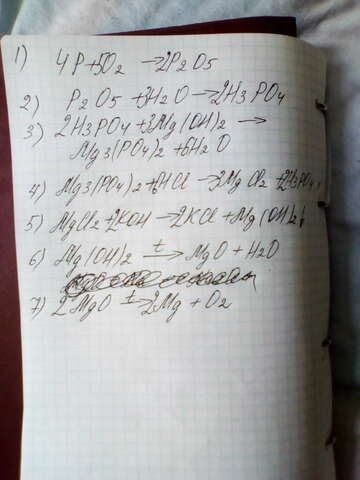 1) 4P+5O2 →2P2O5
2) P2O5 +3H2O→2H3PO4
3) 2H3PO4+3Mg(OH)2 →
Mg3(PO4)2 +6H2O
4) Mg3(PO4)2+6HCl →3MgCl2 +2H3PO4
5) MgCl2+2KOH →2KCl+Mg(OH)2↓
6) Mg(OH)2 t→ MgO + H2O
7) 2MgO t→ 2Mg + O2